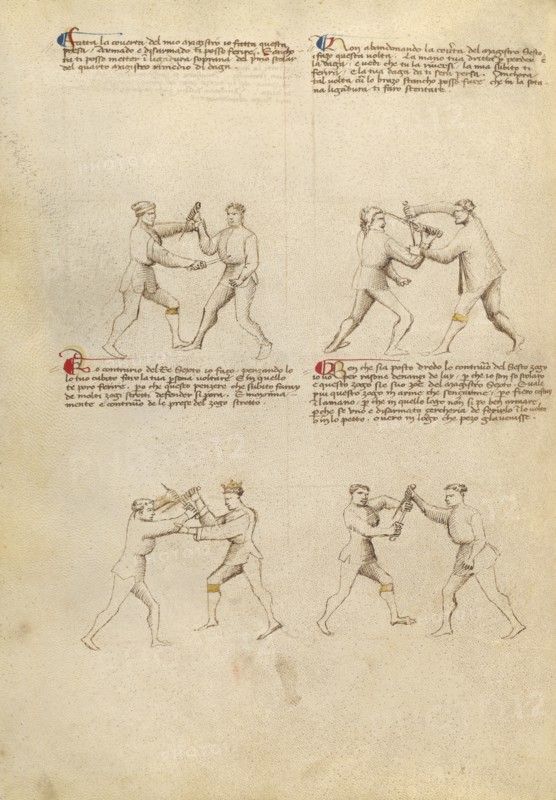 Fatta la coverta del mio magistro io fatta questa
presa / Armado e disarmado ti posso ferire. E ancho
ra ti posso metter i ligadura soprana del pmo scolar
del quarto magistro rimedio di daga.
Non abandonando la coverta del magistro Sesto
i fazo questa volta. La mano tua dritta p perder e
la daga. e vedi che tu la riversi. la mia subito ti
ferirà. E la tua daga da ti serà persa. Anchora
tal volta cu lo brazo stancho posso fare che in la sota
na ligadura ti farò stentare
Lo contrario del Re Sesto io fazo. penzando lo
lo tuo cubito faro la tua psona voltare. E in quello
te porò ferire. po che questo penzere che subito faray
de molti zogi stretti defender si porà. E maxima
mente e contrario de le prese del zogo stretto.
Ben che sia posto dredo lo contrario del Sesto zogo
io vo per rasone denanzi de luy. p che io son so scolaro
e questo zogo si e suo zoe del magistro Sesto. E vale
piu questo zogo in arme che senzarme. po fiero costuy
in la mano. p che in quello logo non si po ben armare.
P che se uno e disarmato zercheria de ferirlo i lo volto
o in lo petto. overo in logo che pezo gli avenisse.